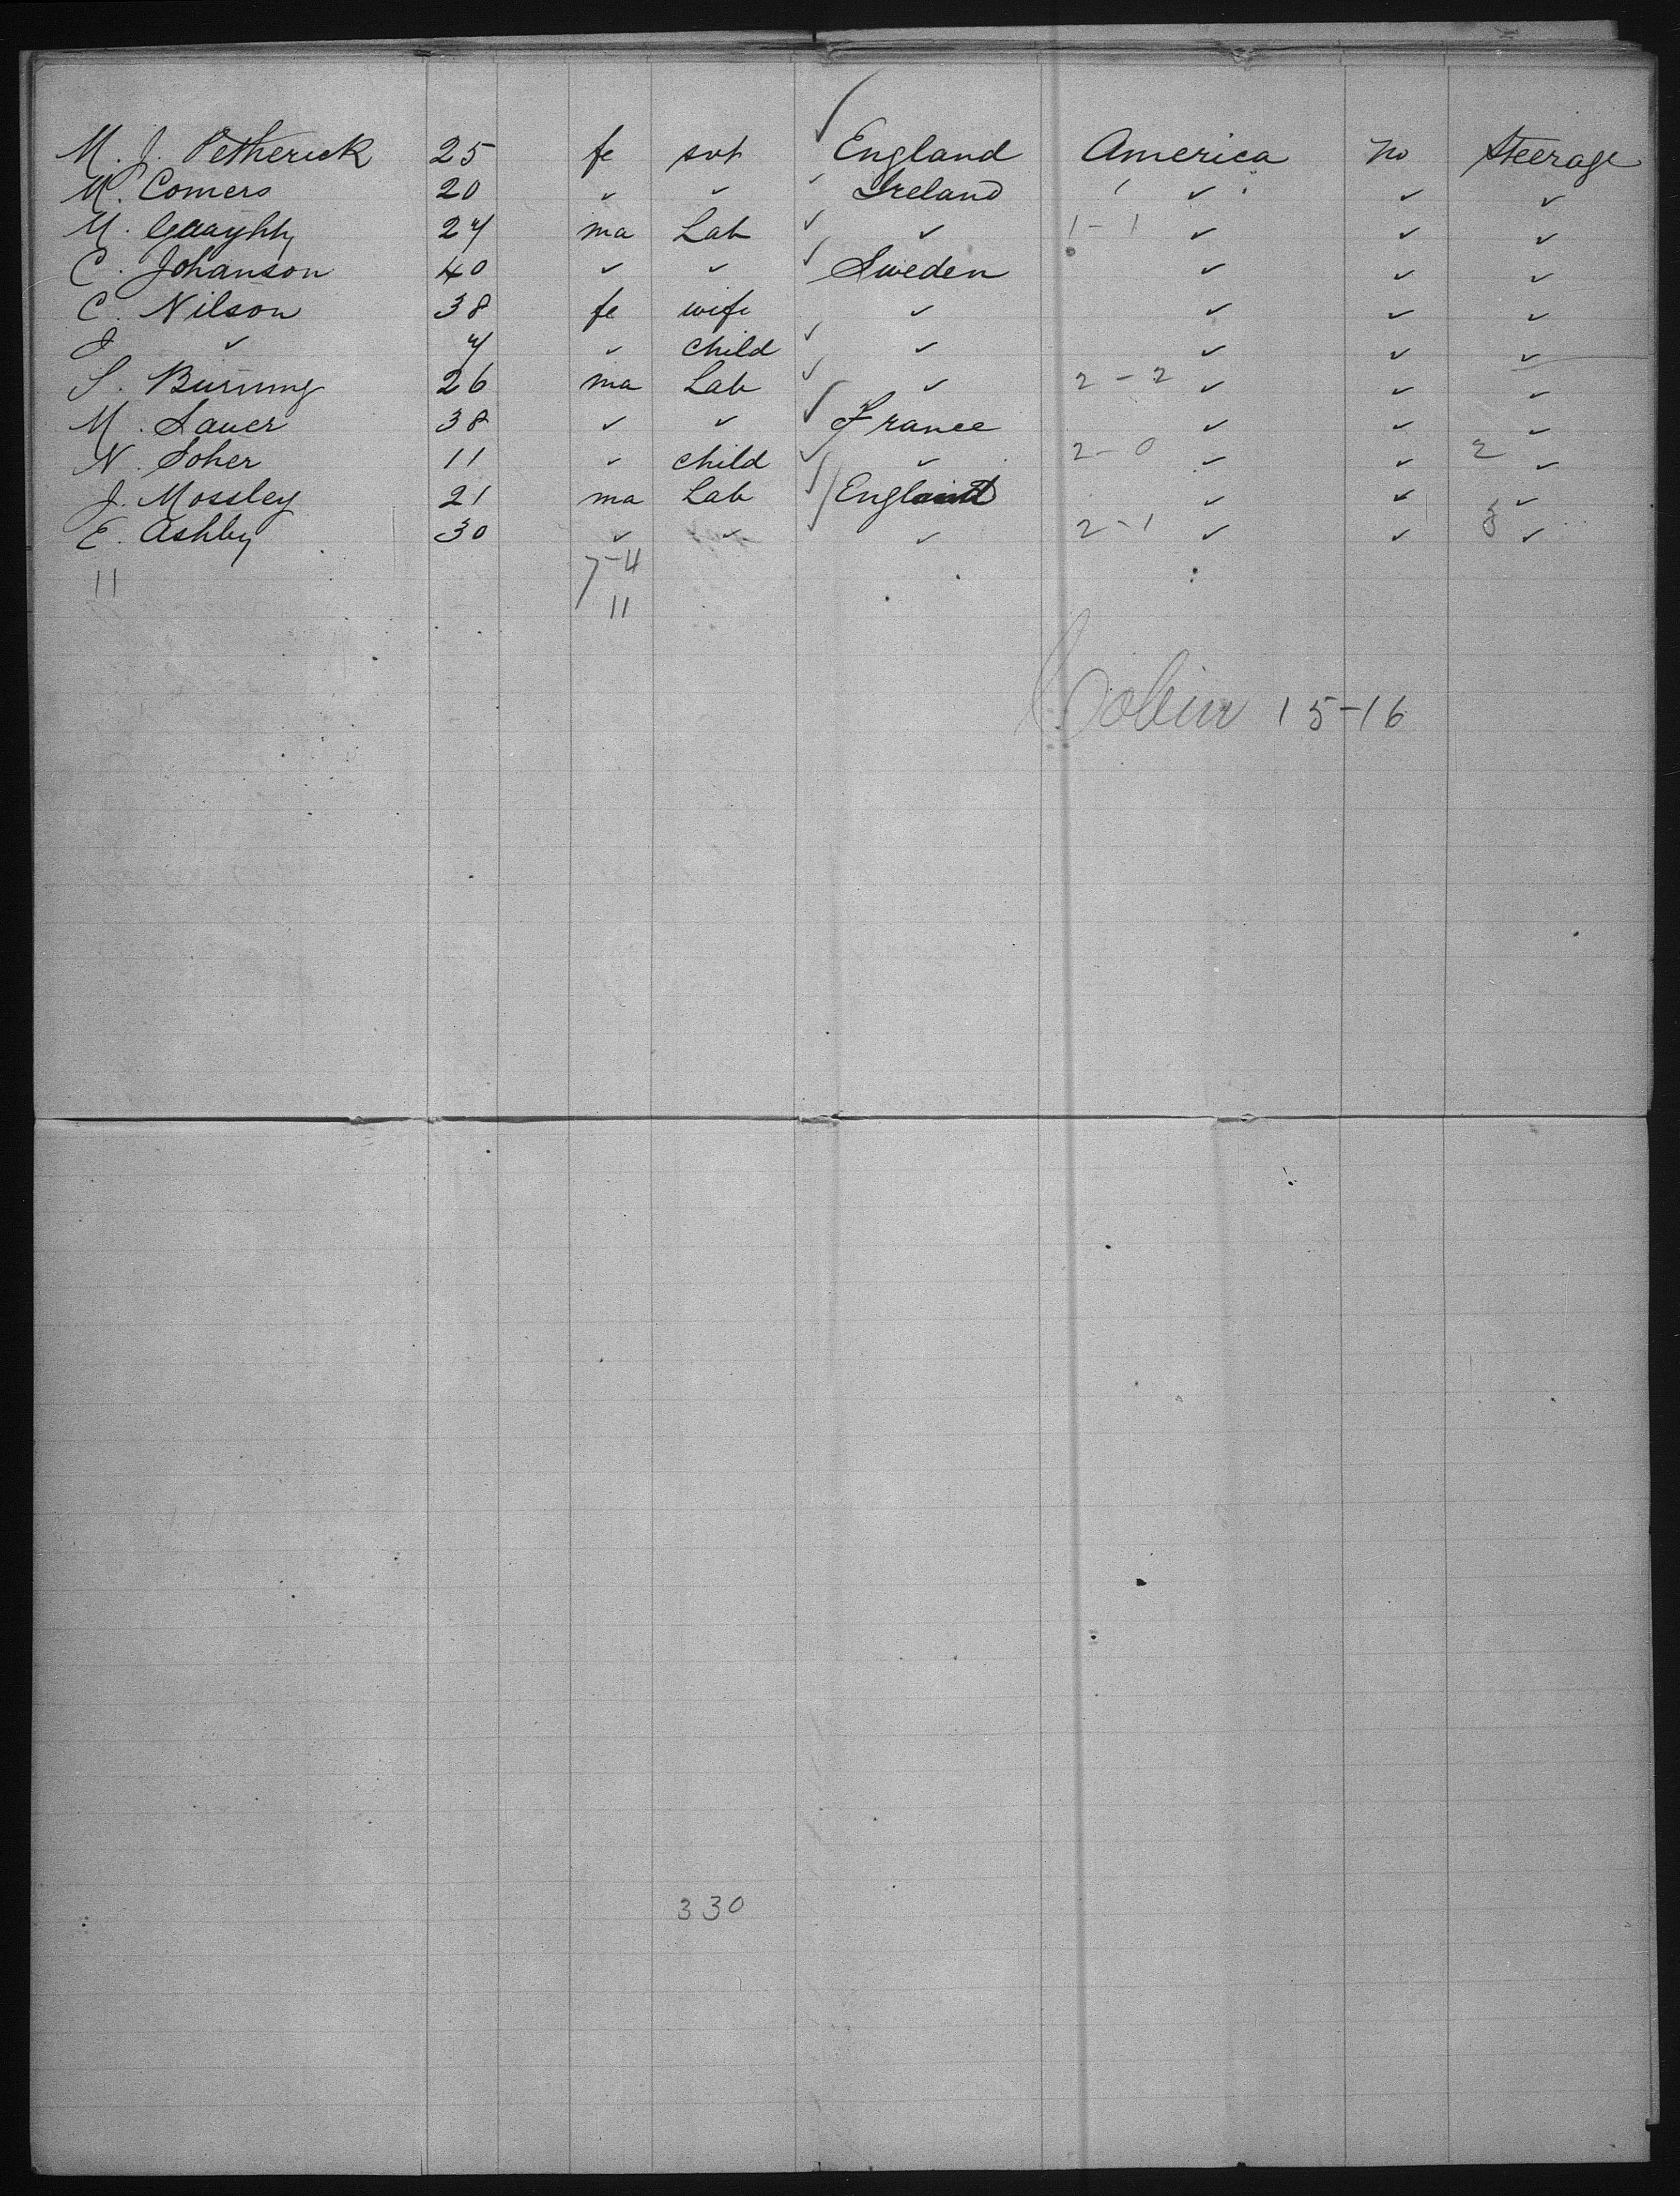 M. J. Petherick 25 fe svt ✓ England America No Steerage
M. Comers 20 ✓ ✓ ✓ Ireland ✓ ✓ ✓
M. 24 ma Lab ✓ ✓ 1-1 ✓ ✓ ✓
C. Johanson 40 ✓ ✓ ✓ Sweden ✓ ✓ ✓
C. Nilson 38 fe wife ✓ ✓ ✓ ✓
J ✓ 4 ✓ child ✓ ✓ ✓ ✓ ✓
S. 26 ma Lab ✓ ✓ 2-2 ✓ ✓ ✓
M. Sauer 38 ✓ ✓ ✓ France ✓ ✓ ✓
N. Soher 11 ✓ child ✓ ✓ 2-0 ✓ ✓ 2 ✓
J. Mossley 21 ma Lab ✓ England ✓ ✓ ✓
E. Ashby 30 ✓ ✓ ✓ ✓ 2-1 ✓ ✓ 3 ✓
11 7-4
11
15-16
330